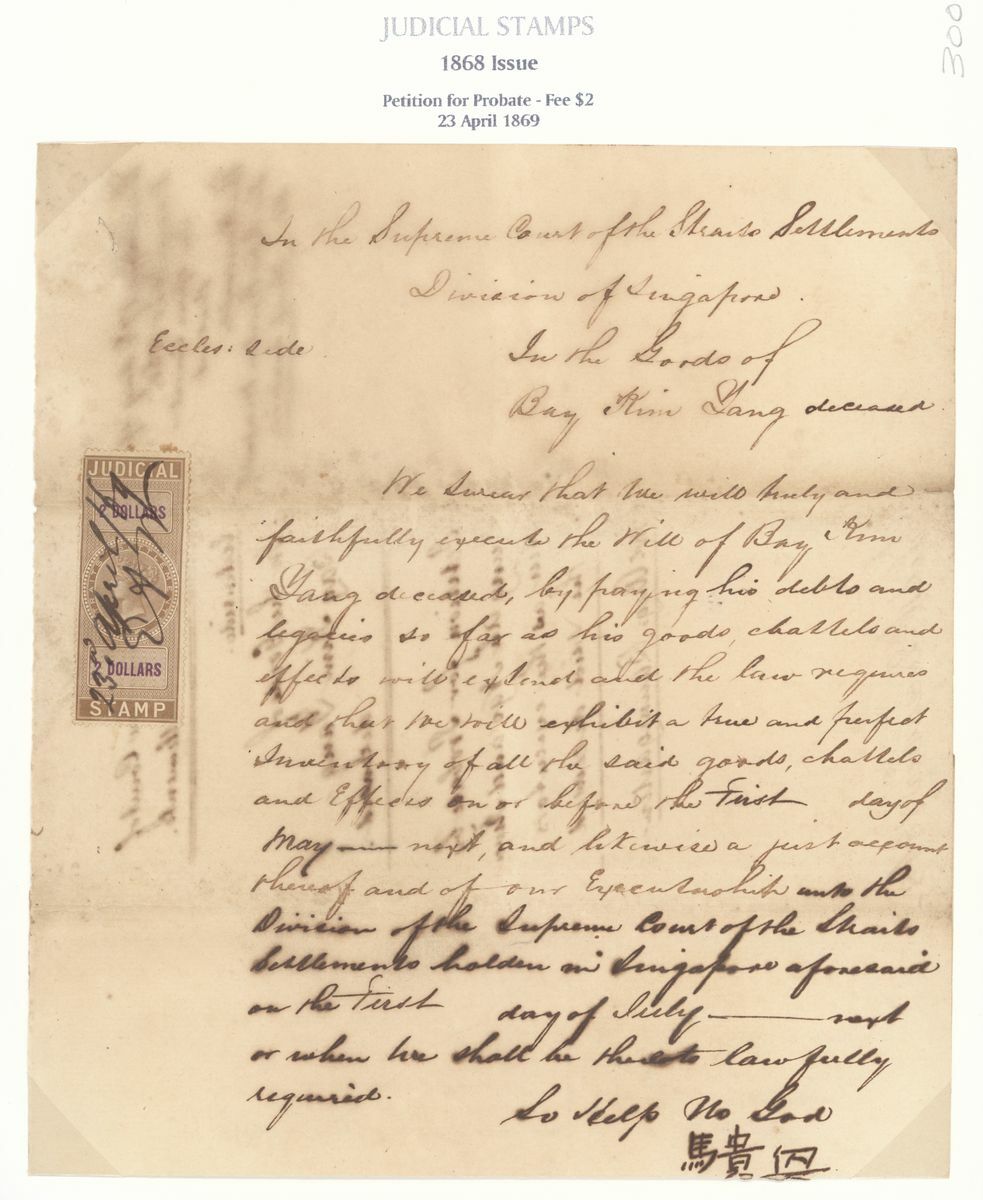 JUDICIAL STAMPS
1868 Issue
Petition for Probate - Fee $2
23 April 1869
300
In the Supreme Court of the Straits Settlements
Division of Singapore.
Eccles: side
In the Goods of
Bay Kim Yang deceased.
We swear that we will truly and
faithfully execute the Will of Bay Kim
Yang deceased, by paying his debts and
legacies so far as his goods, chattels and
effects will extend and the law requires
and that we will exhibit a true and perfect
Inventory of all the said goods, chattels
and Effects on or before the First day of
May next, and likewise a just account
thereof and of our Executorship unto the
Division of the Supreme Court of the Straits
Settlements holden in Singapore aforesaid
on the First day of July next
or when we shall be thereto lawfully
required.
So Help Us God
馬貴
JUDICIAL
2 DOLLARS
23rd April/69
2 DOLLARS
STAMP